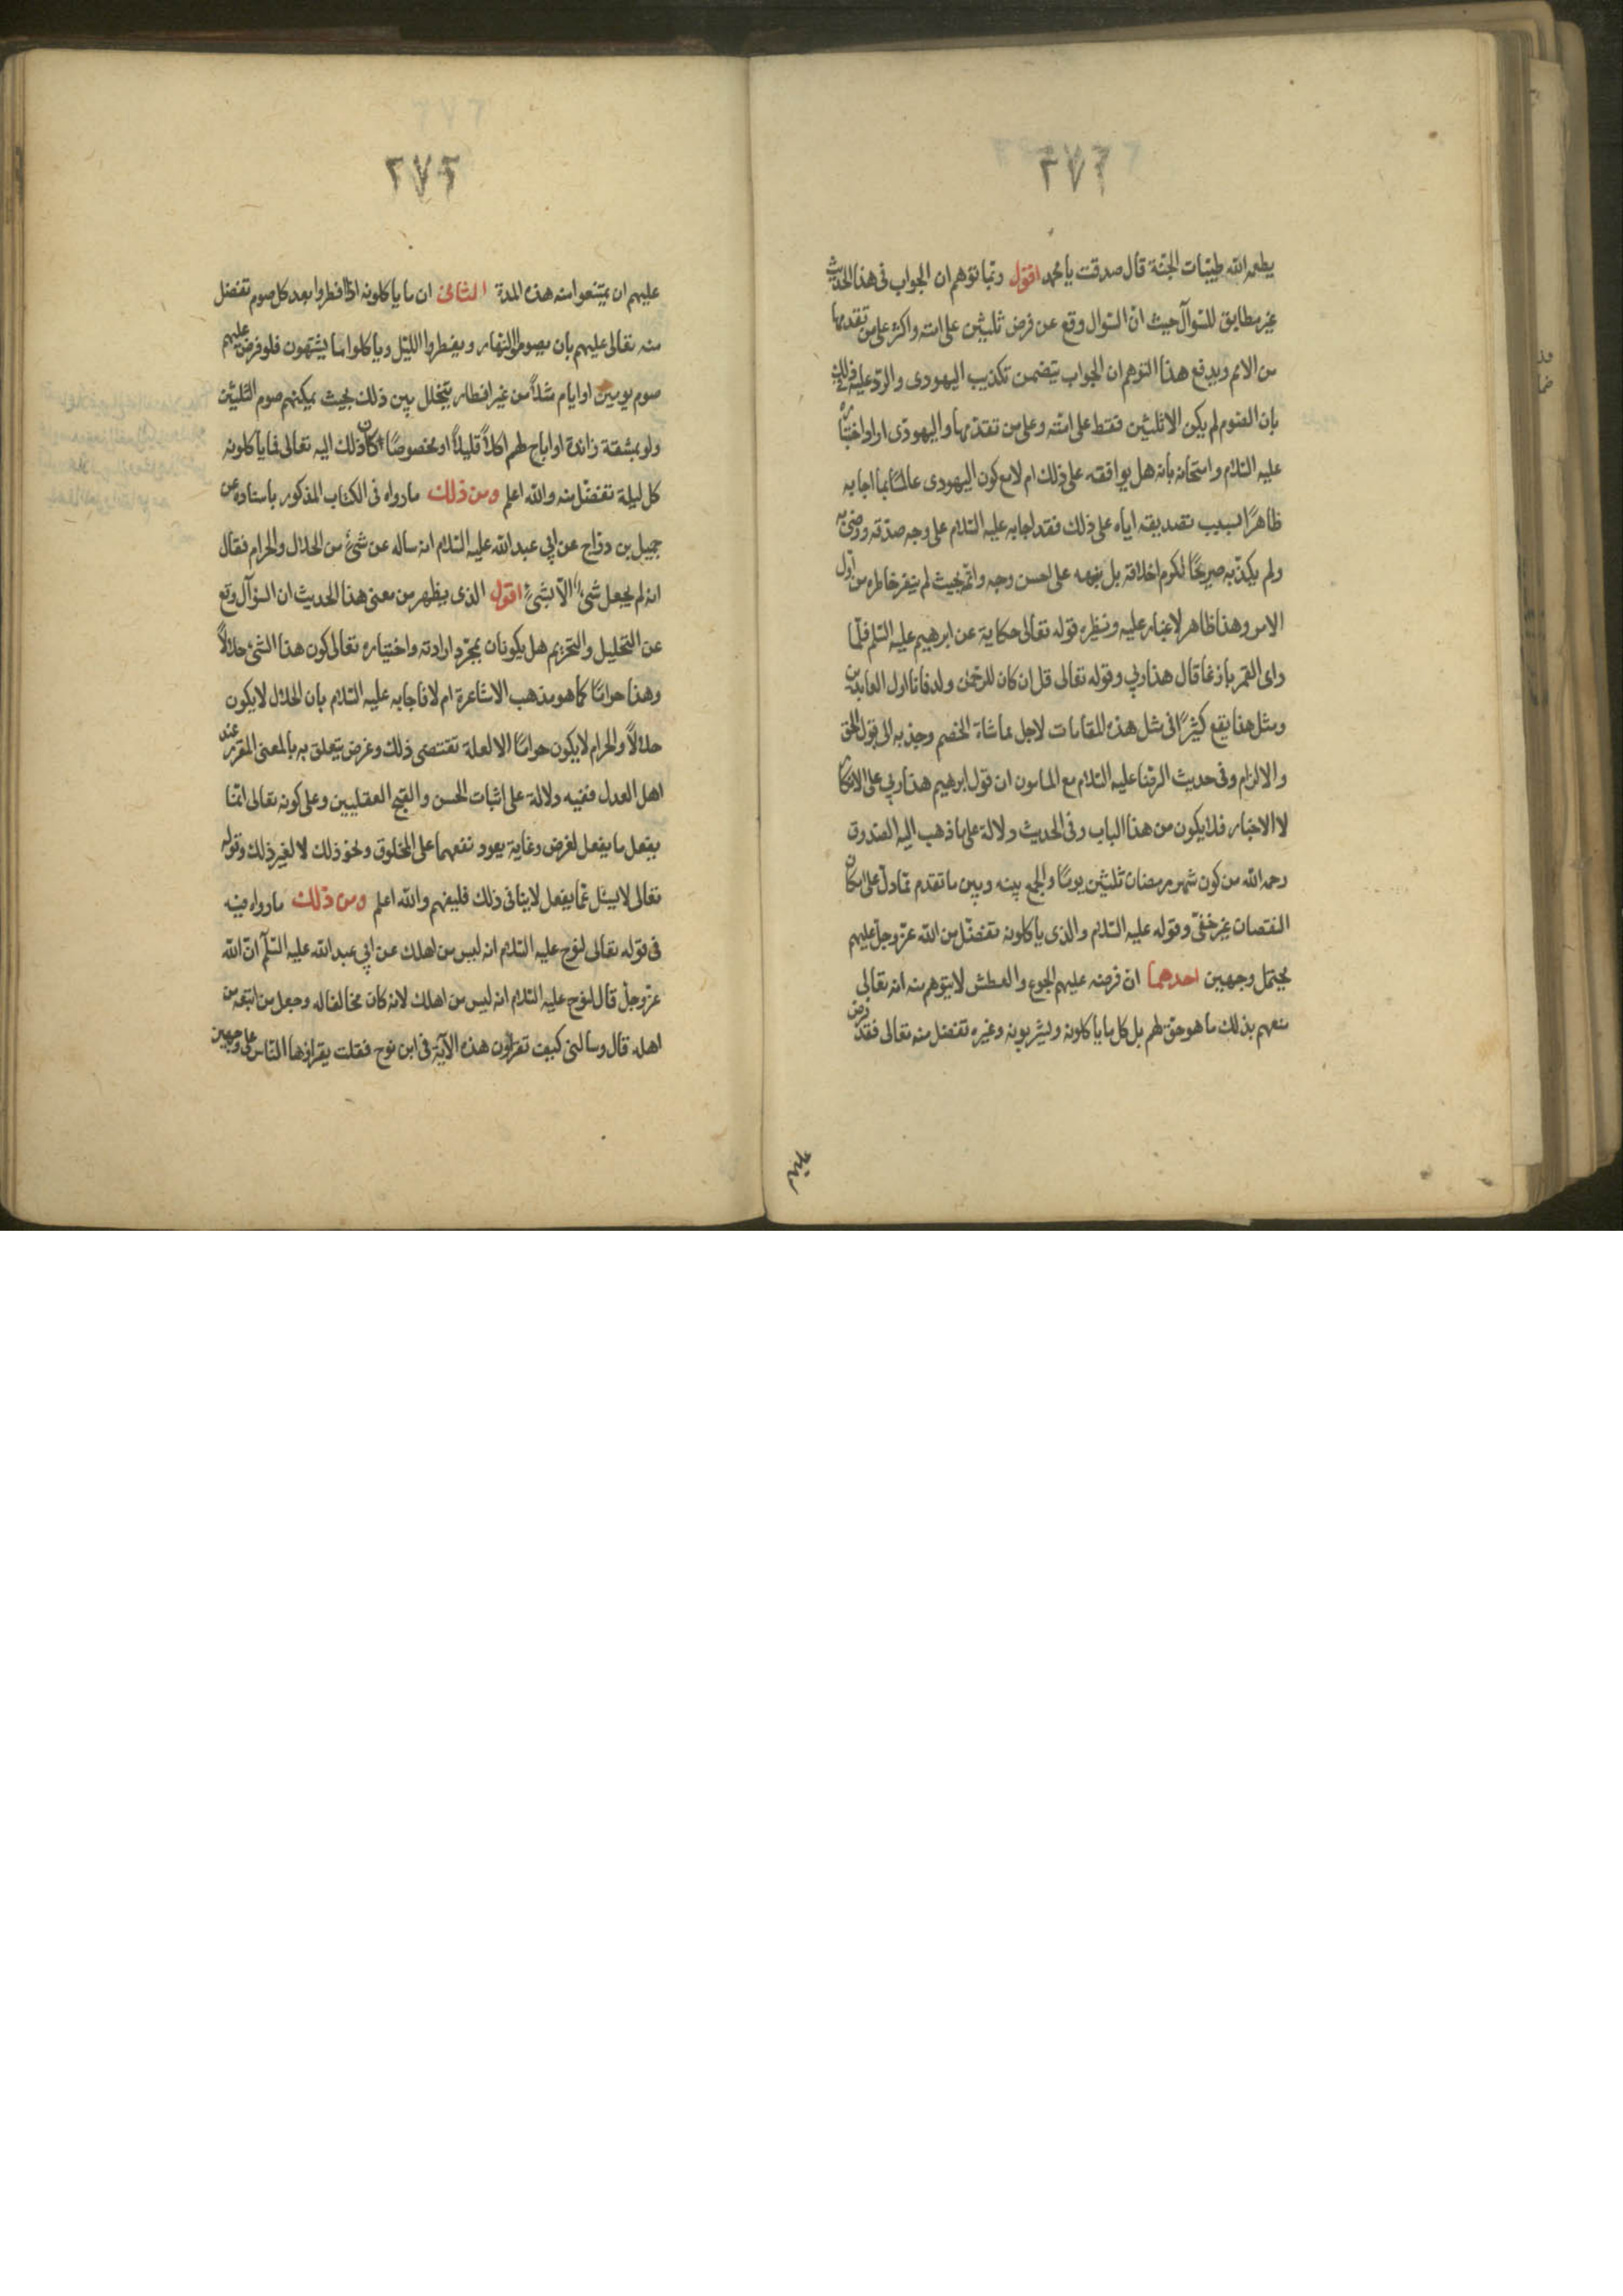 ٢٧١
يطعمه الله طيبات الجنة قال صدقت يا محمد اقول ربما توهم ان الجواب فى هذا الحديث
غير مطابق للسوآل حيث انّ السوال وقع عن فرض ثلثين على امته واكثر على من تقدمها
من الامم ويدفع هذا التوهم ان الجواب يتضمن تكذيب اليهودى والردّ عليه فى ذلك
بان الصوم لم يكن الا ثلثين فقط على امته وعلى من تقدمها واليهودى اراد اختباره
عليه السّلام وامتحانه بانه هل يوافقه على ذلك ام لا مع كون اليهودى عالمًا بما اجابه
ظاهرًا بسبب تصديقه اياه على ذلك فقد اجابه عليه السّلام على وجه صدّقه ورضى به
ولم يكذّبه صريحًا لكرم اخلاقه بل نبهه على احسن وجه واتمّ بحيث لم ينفر خاطره من اول
الامر وهذا ظاهر لا غبار عليه ونظيره قوله تعالى حكاية عن ابرهيم عليه السّلم فلمّا
راى القمر بازغا قال هذا ربي وقوله تعالى قل ان كان للرّحمٰن ولد فانا اول العابدين
ومثل هذا يقع كثيرًا فى مثل هذه المقامات لاجل مماشاة الخصم وجذبه الى قول الحق
والالزام وفى حديث الرضا عليه السّلام مع المامون ان قول ابرهيم هذا ربي على الانكار
لا الاخبار فلا يكون من هذا الباب وفى الحديث دلالة على ما ذهب اليه الصدوق
رحمه الله من كون شهر رمضان ثلثين يومًا والجمع بينه وبين ما تقدم ممّا دلّ على امكان
النقصان غير خفىّ وقوله عليه السّلام والذى ياكلونه تفضّل من الله عزّ وجلّ عليهم
يحتمل وجهين احدهما ان فرضه عليهم الجوع والعطش لا يتوهم منه انه تعالى
منعهم بذلك ما هو حق لهم بل كل ما ياكلونه ويشربونه وغيره تفضل منه تعالى فقد فرض
عليهم
٢٧٢
عليهم ان يمتنعوا منه هذه المدة الثانى ان ما ياكلونه اذا افطروا بعد كل صوم تفضل
منه تعالى عليهم بان يصوموا النهار ويفطروا الليل وياكلوا ما يشتهون فلو فرض عليهم
صوم يومين او ايام مثلاً من غير افطار يتخلل بين ذلك بحيث يمكنهم صوم الثلثين
ولو بمشقة زائدة او اباح لهم اكلاً قليلاً او مخصوصًا كان ذلك اليه تعالى فما ياكلونه
كل ليلة تفضّل منه والله اعلم ومن ذلك ما رواه فى الكتاب المذكور باسناده عن
جميل بن درّاج عن ابي عبد الله عليه السّلام انه ساله عن شئ من الحلال والحرام فقال
انه لم يجعل شئ الّا بشئ اقول الذى يظهر من معنى هذا الحديث ان السوآل وقع
عن التحليل والتحريم هل يكونان بمجرّد ارادته واختياره تعالى كون هذا الشئ حلالاً
وهذا حرامًا كما هو مذهب الاشاعرة ام لا فاجابه عليه السّلام بان الحلال لا يكون
حلالاً والحرام لا يكون حرامًا الا لعلة تقتضى ذلك وغرض يتعلق به بالمعنى المقرر عند
اهل العدل ففيه دلالة على اثبات الحسن والقبح العقليين وعلى كونه تعالى انما
يفعل ما يفعل لغرض وغاية يعود نفعهما على المخلوق ونحو ذلك لا لغير ذلك وقوله
تعالى لا يسئل عمّا يفعل لا ينافى ذلك فليفهم والله اعلم ومن ذلك ما رواه فيه
فى قوله تعالى لنوح عليه السّلام انه ليس من اهلك عن ابي عبد الله عليه السّلم انّ الله
عزّ وجلّ قال لنوح عليه السّلام انه ليس من اهلك لانه كان مخالفا له وجعل من اتبعه من
اهله قال وسالنى كيف تقراون هذه الآية فى ابن نوح فقلت يقراؤها النّاس على وجهين